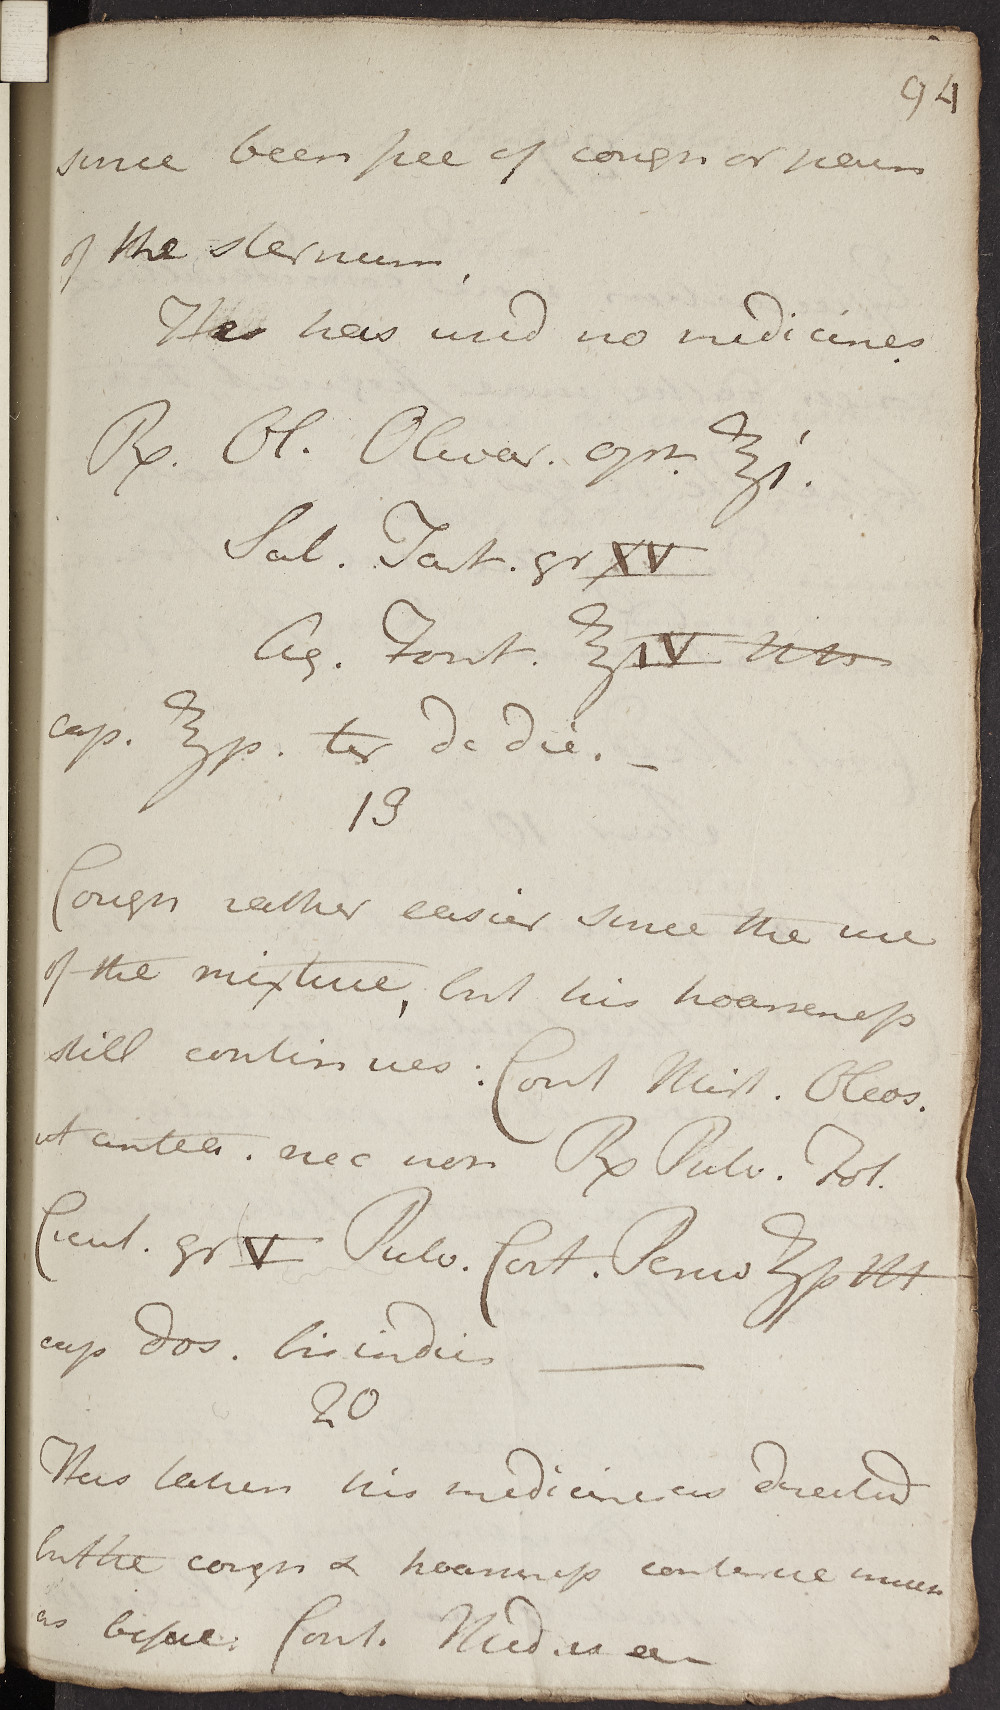 94
since been free of cough or pain
of the sternum.
He has used no medicines
Rx. Ol. Olivar. opt. ℥i.
Sal. Tart. gr XV
Aq. Font. ℥IV M
cap. ℥ß. ter de die. _
13
Cough rather easier since the use
of the mixture, but his hoarseness
still continues: Cont Mist. Oleos.
ut antea. nec non Rx Pulv. Fol.
Cicut. gr V Pulv. Cort. Peruv ʒß M
cap dos. bis indies
20
Has taken his medicines as directed
but the cough & hoarseness continue much
as before: Cont. Med.